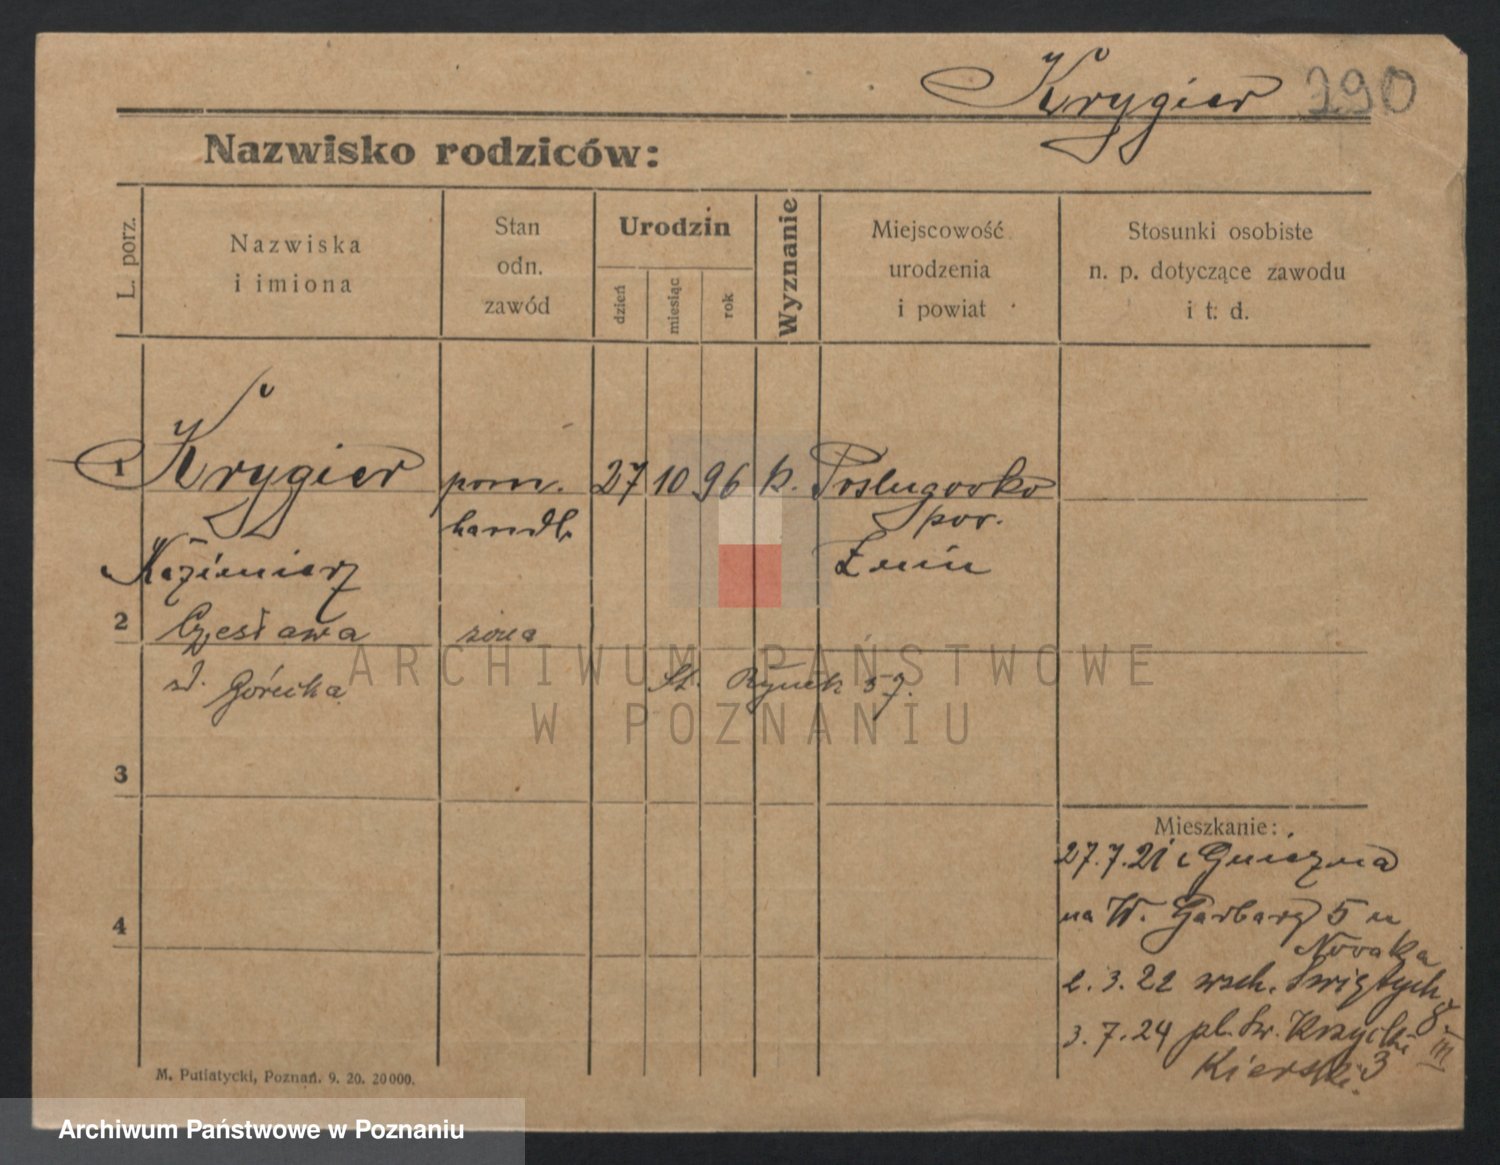 Krygier 290
Nazwisko rodziców:
L. porz.
Nazwiska
i imiona
Stan
odn.
zawód
Urodzin
dzień
miesiąc
rok
Wyznanie
Miejscowość
urodzenia
i powiat
Stosunki osobiste
n. p. dotyczące zawodu
i t. d.
1 Krygier pom. 27 10 96 k. Posługowko
handl. pow.
Kazimierz Żnin
2 Czesława żona
zd. Górecka St. Rynek 57.
3
Mieszkanie:
27.7.21 z Gniezna
4
na W. Garbary 5 u
Nowaka
2.3.22 wsch. Świętych 8 III
3.7.24 pl. Św. Krzyski 3
Kierski.
M. Putiatycki, Poznań. 9. 20. 20000.
ARCHIWUM PAŃSTWOWE
W POZNANIU
Archiwum Państwowe w Poznaniu